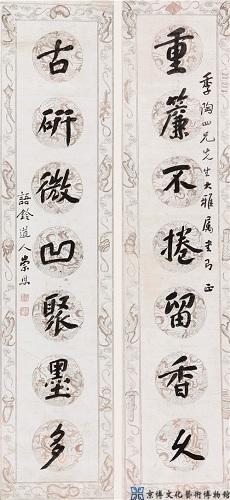 重簾不捲留香久
季陶四兄先生大雅属书即正
古研微凹聚墨多
語鈴道人崇恩
京博文化藝術博物館